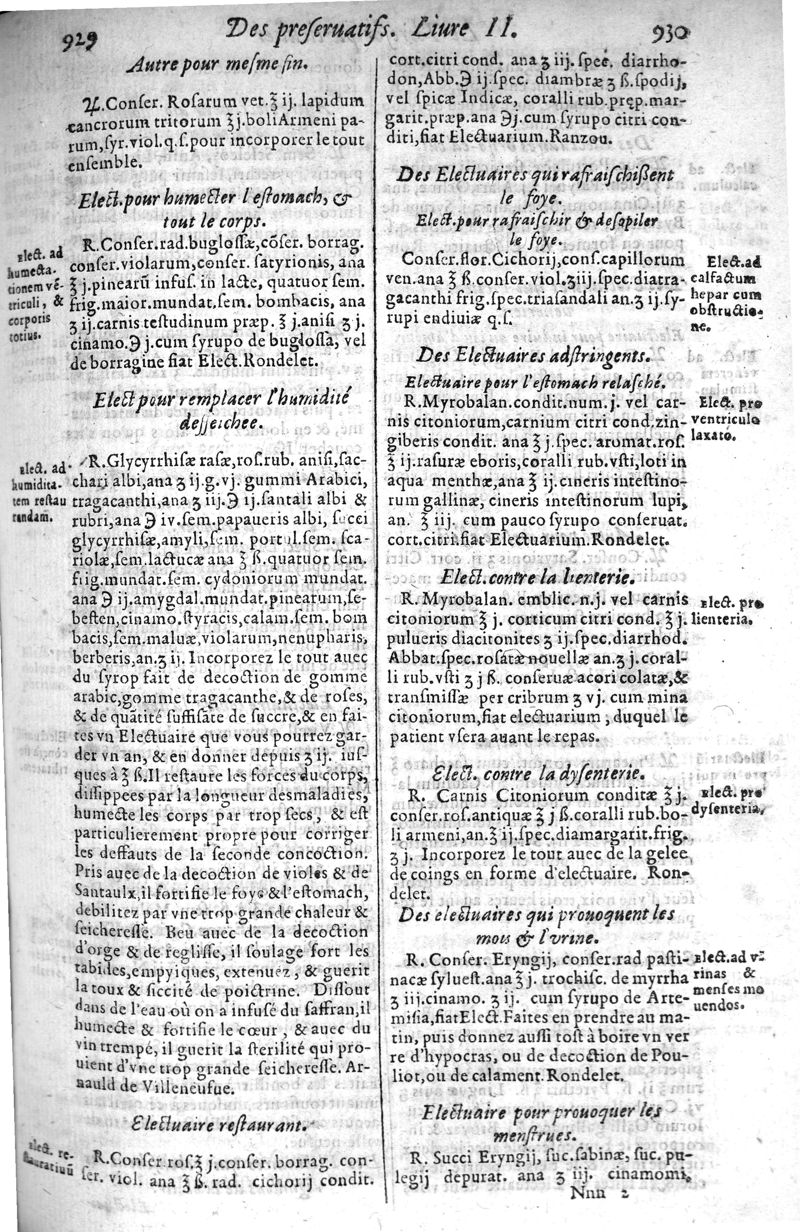 929
Des preſeruatifs. Liure II.
930
Autre pour meſme fin.
℞.Conſer. Roſarum vet.ʒ̄ ij. lapidum
cancrorum tritorum ʒ̄j.boli Armeni pa-
rum,ſyr.viol.q.ſ.pour incorporer le tout
enſemble.
Elect.pour humecter l'eſtomach, &
tout le corps.
Elect. ad
humecta-
tionem vē-
triculi, &
corporis
totius.
R.Conſer.rad.bugloſſæ,cōſer. borrag.
conſer.violarum,conſer. ſatyrionis, ana
ʒ̄ j.pinearū infuſ. in lacte, quatuor ſem.
frig.maior.mundat.ſem. bombacis, ana
ʒ ij.carnis teſtudinum præp. ʒ̄ j.aniſi ʒ j.
cinamo.℈ j.cum ſyrupo de bugloſſa, vel
de borragine fiat Elect.Rondelet.
Elect pour remplacer l'humidité
deſſeichee.
Elect. ad
humidita-
tem reſtau
randam.
R.Glycyrrhiſæ raſæ,roſ.rub. aniſi,ſac-
chari albi,ana ʒ ij.g.vj. gummi Arabici,
tragacanthi,ana ʒ ij.℈ ij.ſantali albi &
rubri,ana ℈ iv.ſem.papaueris albi, ſucci
glycyrrhiſæ,amyli,ſem. portul.ſem. ſca-
riolæ,ſem.lactucæ ana ʒ ß.quatuor ſem.
frig.mundat.ſem. cydoniorum mundat.
ana ℈ ij.amygdal.mundat.pinearum,ſe-
beſten,cinamo.ſtyracis,calam.ſem. bom
bacis,ſem.maluæ,violarum,nenupharis,
berberis,an.ʒ ij. Incorporez le tout auec
du ſyrop fait de decoction de gomme
arabic,gomme tragacanthe,& de roſes,
& de quātité ſuffiſāte de ſuccre,& en fai-
tes vn Electuaire que vous pourrez gar-
der vn an, & en donner depuis ʒ ij. iuſ-
ques à ʒ̄ ß.Il reſtaure les forces du corps,
diſſippees par la longueur desmaladies,
humecte les corps par trop ſecs, & eſt
particulierement propre pour corriger
les deffauts de la ſeconde concoction.
Pris auec de la decoction de violes & de
Santaulx,il fortifie le foye &l'eſtomach,
debilitez par vne trop grande chaleur &
ſeichereſſe. Beu auec de la decoction
d'orge & de regliſſe, il ſoulage fort les
tabides,empyiques, extenuez, & guerit
la toux & ſiccité de poictrine. Diſſout
dans de l'eau où on a infuſé du ſaffran,il
humecte & fortifie le cœur, & auec du
vin trempé, il guerit la ſterilité qui pro-
uient d'vne trop grande ſeichereſſe. Ar-
nauld de Villeneufue.
Electuaire reſtaurant.
Elect. re-
ſtauratiuū
R.Conſer roſ.ʒ̄ j.conſer. borrag. con-
ſer. viol. ana ʒ̄ ß. rad. cichorij condit.
cort.citri cond. ana ʒ iij.ſpec. diarrho-
don,Abb.℈ ij.ſpec. diambræ ʒ ß.ſpodij,
vel ſpicæ Indicæ, coralli rub.pręp.mar-
garit.præp.ana ℈j.cum ſyrupo citri con-
diti,fiat Electuarium.Ranzou.
Des Electuaires qui rafraiſchißent
le foye.
Elect.pour rafraiſchir & deſopiler
le foye.
Elect.ad
calfactum
hepar cum
obſtructio-
ne.
Conſer.flor.Cichorij,conſ.capillorum
ven.ana ʒ̄ ß.conſer.viol.ʒiij.ſpec.diatra-
gacanthi frig.ſpec.triaſandali an.ʒ ij.ſy-
rupi endiuiæ q.ſ.
Des Electuaires adſtringents.
Electuaire pour l'eſtomach relaſché.
Elect. pro
ventriculo
laxato.
R.Myrobalan.condit.num.j. vel car-
nis citoniorum,carnium citri cond.zin-
giberis condit. ana ʒ̄ j.ſpec. aromat.roſ.
ʒ ij.raſuræ eboris,coralli rub.vſti,loti in
aqua menthæ,ana ʒ ij.cineris inteſtino-
rum gallinæ, cineris inteſtinorum lupi,
an. ʒ iij. cum pauco ſyrupo conſeruat.
cort.citri.fiat Electuarium.Rondelet.
Elect.contre la lienterie.
Elect. pro
lienteria.
R. Myrobalan. emblic. n.j. vel carnis
citoniorum ʒ̄ j. corticum citri cond. ʒ̄ j.
pulueris diacitonites ʒ ij.ſpec.diarrhod.
Abbat.ſpec.roſatæ nouellæ an.ʒ j.coral-
li rub.vſti ʒ j ß. conſeruæ acori colatæ,&
tranſmiſſæ per cribrum ʒ vj. cum mina
citoniorum,fiat electuarium, duquel le
patient vſera auant le repas.
Elect. contre la dyſenterie.
Elect. pro
dyſenteria.
R. Carnis Citoniorum conditæ ʒ̄ j.
conſer.roſ.antiquæ ʒ̄ j ß.coralli rub.bo-
li armeni,an.ʒ ij.ſpec.diamargarit.frig.
ʒ j. Incorporez le tout auec de la gelee
de coings en forme d'electuaire. Ron-
delet.
Des electuaires qui prouoquent les
mois & l'vrine.
Elect.ad v-
rinas &
menſes mo
uendos.
R. Conſer. Eryngij, conſer.rad paſti-
nacæ ſylueſt.ana ʒ̄ j. trochiſc. de myrrha
ʒ iij.cinamo. ʒ ij. cum ſyrupo de Arte-
miſia,fiatElect.Faites en prendre au ma-
tin, puis donnez auſſi toſt à boire vn ver
re d'hypocras, ou de decoction de Pou-
liot,ou de calament.Rondelet.
Electuaire pour prouoquer les
menſtrues.
R. Succi Eryngij, ſuc.ſabinæ, ſuc. pu-
legij depurat. ana ʒ iij. cinamomi,
Nnn 2